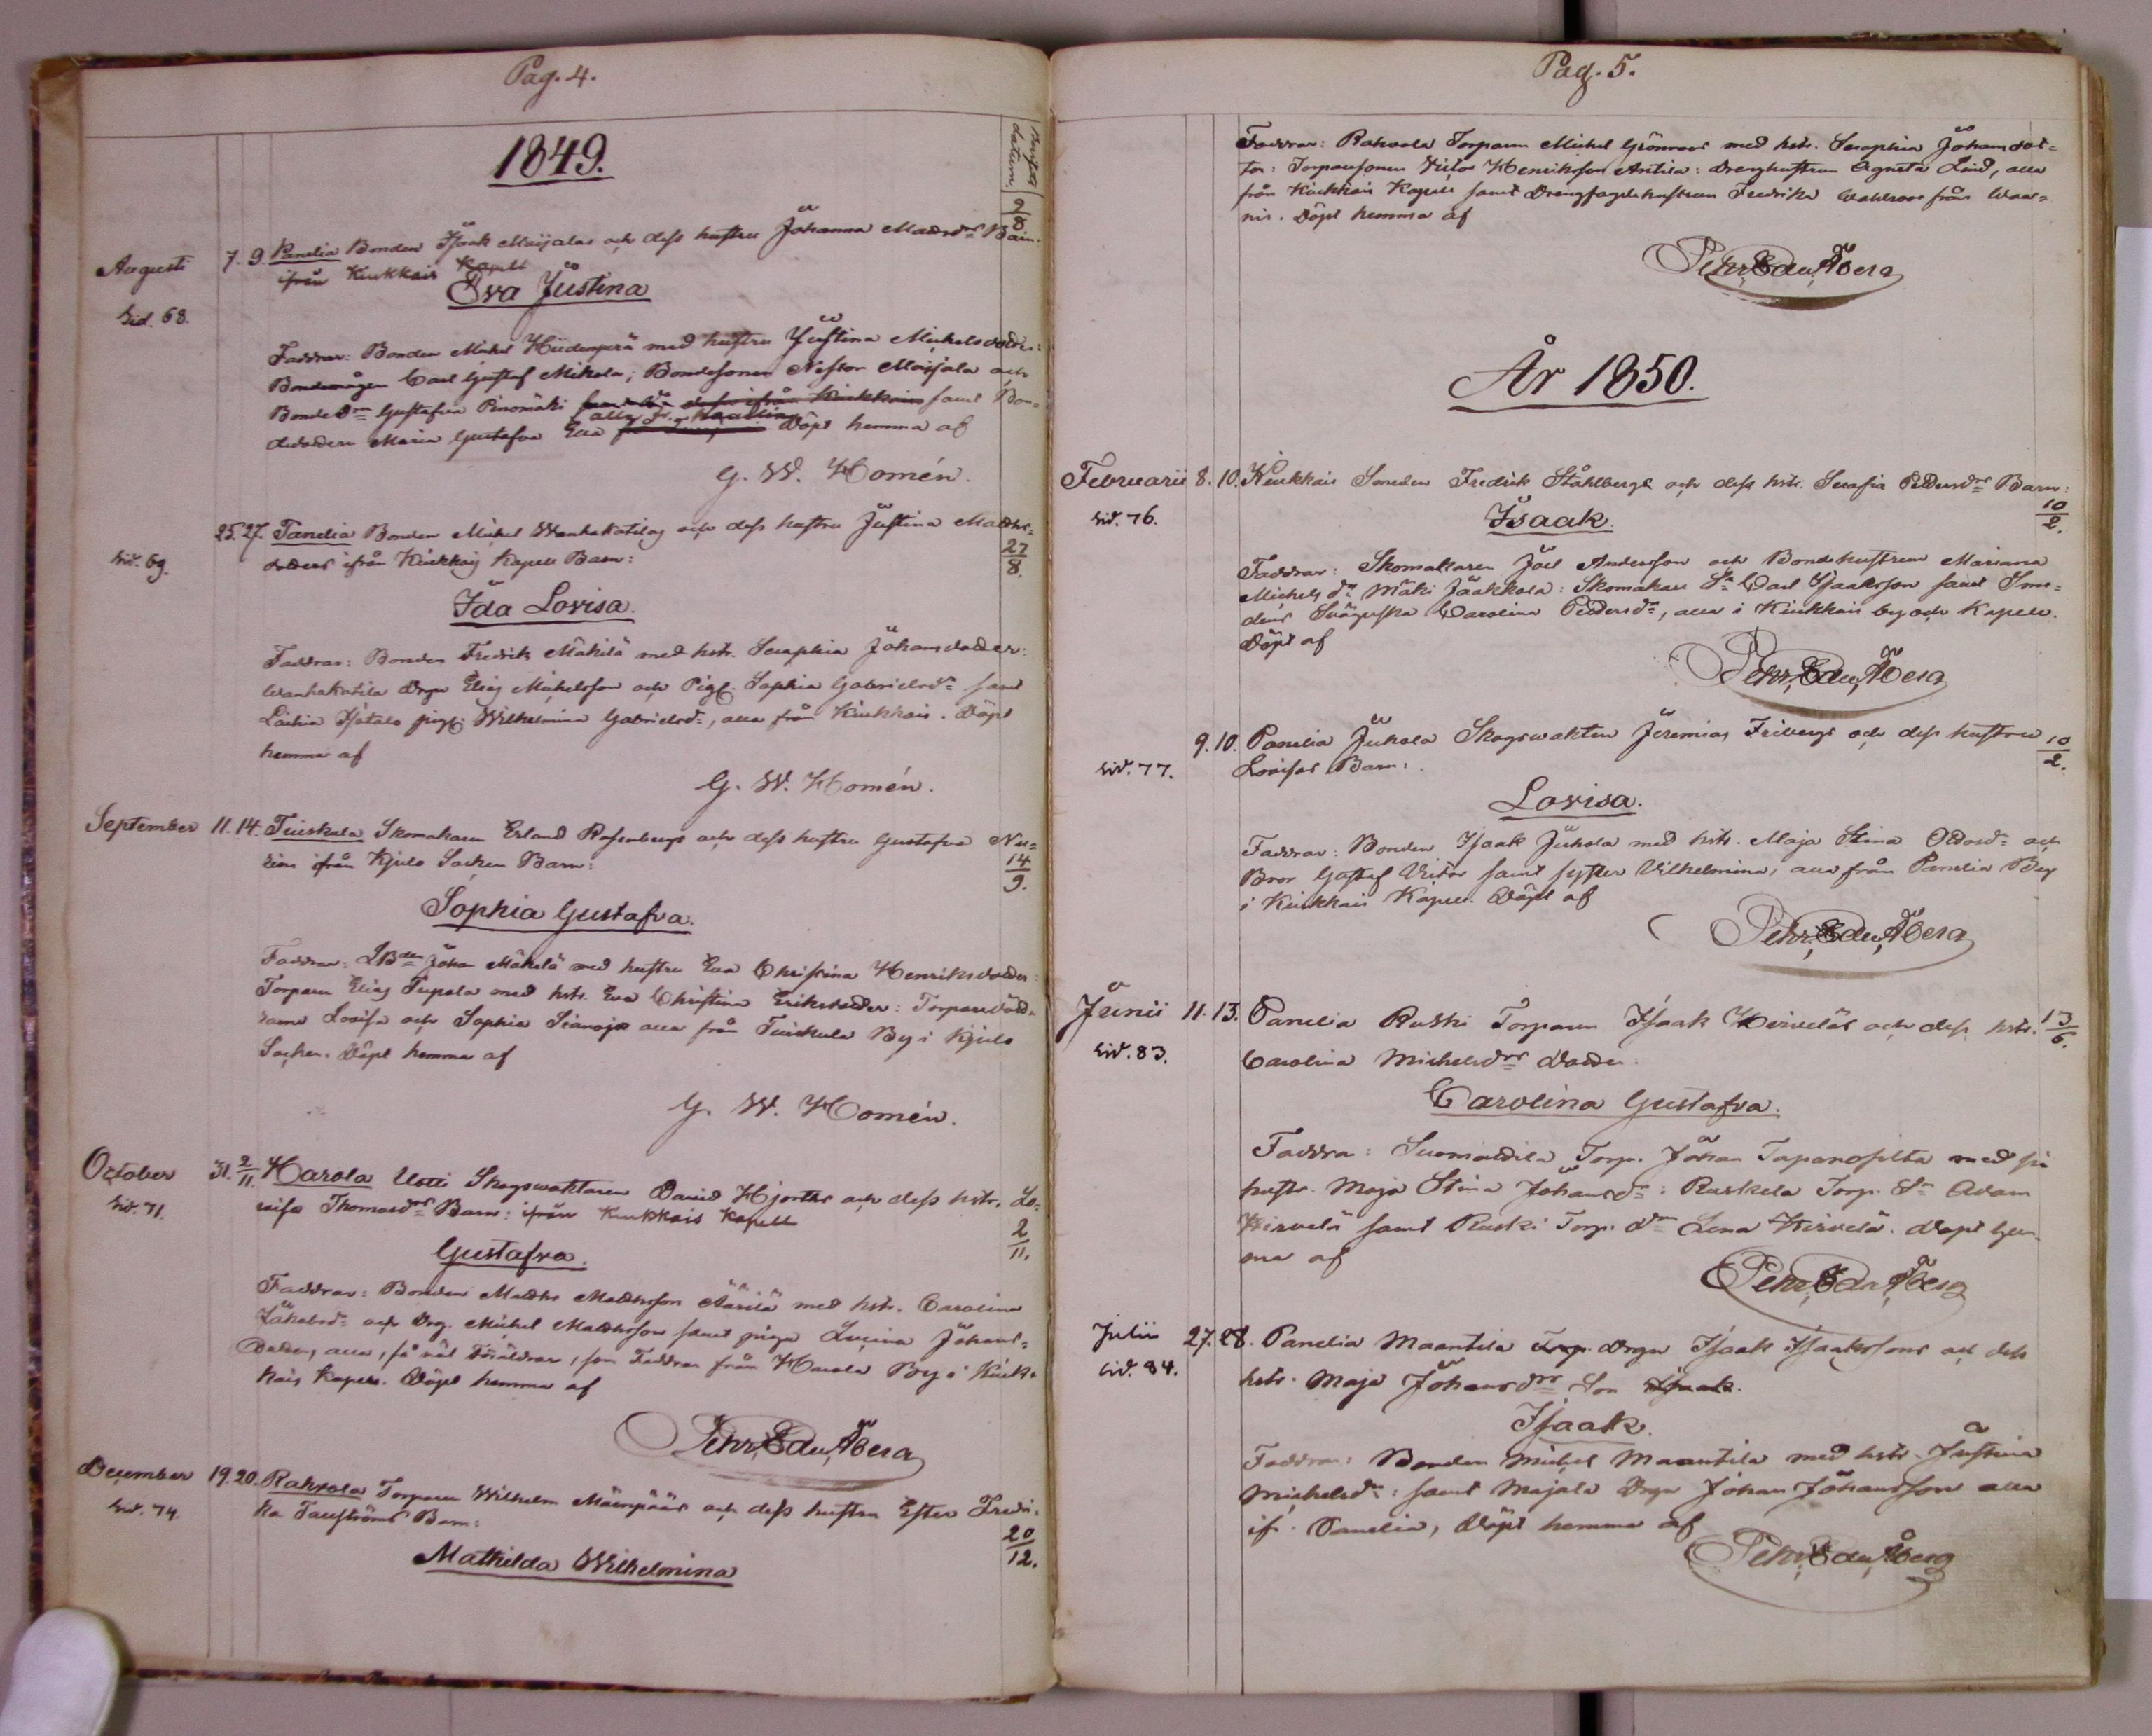 Pag. 4.
1849.
datum.
Augusti 7. 9. Panelia Bonden Isaak Maijalas och dess hustru Johanna Matsdr Barn 9/8
ifrån Kiukkais Kapell
Eva Justina
Sid. 68.
Faddrar: Bonden Mickel Hiidenperä med hustru Justina Mickelsdotter:
Bondemågen Carl Gustaf Mikola; Bondesonen Nestor Maijala och
Bondedr Gustafva Pinomäki samt Bon-
dedottern Maria Gustafva Eva Döpt hemma af
G. W. Homén.
25. 27. Panelia Bonden Mickel Wanhakatilas och dess hustru Justina Matths-
dotters ifrån Kiukkais Kapell Barn: 27/8.
Sid. 69.
Ida Lovisa.
Faddrar: Bonden Fredrik Mäkilä med hstr. Seraphia Johansdotter:
Wanhakatila Drgn Elias Mickelsson och Pig. Sophia Gabrielsdr samt
pig. Wilhelmina Gabrielsdr, alla från Kiukkais. Döpt
hemma af
G. W. Homén.
September 11. 14. Tuiskula Skomakaren Erland Rosenbergs och dess hustru Gustafva Nu-
ifrån Kjulo Socken Barn: 14/9.
Sophia Gustafva.
Faddrar: Johan Mäkelä med hustru Eva Christina Henriksdotter:
Torparen Elias Tupala med hstr. Eva Christina Eriksdotter: Torparedött-
rarne Lovisa och Sophia alla från Tuiskula By i Kjulo
Socken. Döpt hemma af
G. W. Homén.
October 31. 2/11. Harola Uotti Skogswaktaren David Hjorths och dess hstr. Lo-
visa Thomasdrs Barn: ifrån Kiukkais Kapell 2/11.
Sid. 71.
Gustafva.
Faddrar: Bonden Matths Matthsson Äärilä med hstr. Carolina
Jakobsdr och Drg. Mickel Matthsson samt pigan Lucina Johans-
dotter, alla, så väl Föräldrar, som Faddrar från Harola By i Kiuk-
kais Kapell. Döpt hemma af
Pehr Edu. Åberg
December 19. 20. Rahvola Torparen Wilhelm Mäenpääs och dess hustru Ester Fredri-
ka Barn: 20/12.
Sid. 74.
Mathilda Wilhelmina
Pag. 5.
Faddrar: Rahvola Torparen Mickel Grönroos med hstr. Seraphia Johansdot-
ter: Torparesonen Victor Henriksson Antila: Drenghustrun Agneta Lind, alla
från Kiukkais Kapell samt hustrun Fredrika från
Döpt hemma af
Pehr Edu. Åberg
År 1850.
Februarii 8. 10. Kiukkais Smeden Fredrik Ståhlbergs och dess hstr. Serafia Pettersdrs Barn: 10/2.
Sid. 76.
Isaak.
Faddrar: Skomakaren Joel Andersson och Bondehustrun Mariana
Michelsdr Mäki Jaakkola: Skomakare Sn Carl Isaaksson samt Sme-
dens Svägerska Carolina Pettersdr, alla i Kiukkais by och Kapell.
Döpt af
Pehr Edu. Åberg
9. 10. Panelia Juhola Skogswakten Jeremias Fribergs och dess hustru 10/2.
Lovisas Barn:
Sid. 77.
Lovisa.
Faddrar: Bonden Isaak Juhola med hstr. Maja Stina och
Bror Gustaf Victor samt syster Vilhelmina, alla från Panelia By
i Kiukkais Kapell. Döpt af
Pehr Edu. Åberg
Junii 11. 13. Panelia Ruski Torparen Isaak Hirveläs och dess hstr. 13/6.
Carolina Michelsdrs Dotter:
Sid. 83.
Carolina Gustafva.
Faddra: Torp. Johan med sin
hustr. Maja Stina Johansdr: Ruskela Torp. Sn Adam
Hirvelä samt Ruski Torp. dr Lena Hirvelä. Döpt hem-
ma af
Pehr Edu. Åberg
Julii 27. 28. Panelia Maantila Drgn Isaak Isaakssons och dess
hstr. Maja Johansdrs Son
Sid. 84.
Isaak.
Faddrar: Bonden Michel Maantila med hstr. Justina
Michelsdr: samt Majala Drgn Johan Johansson alla
ifr. Panelia, Döpt hemma af
Pehr Edu. Åberg